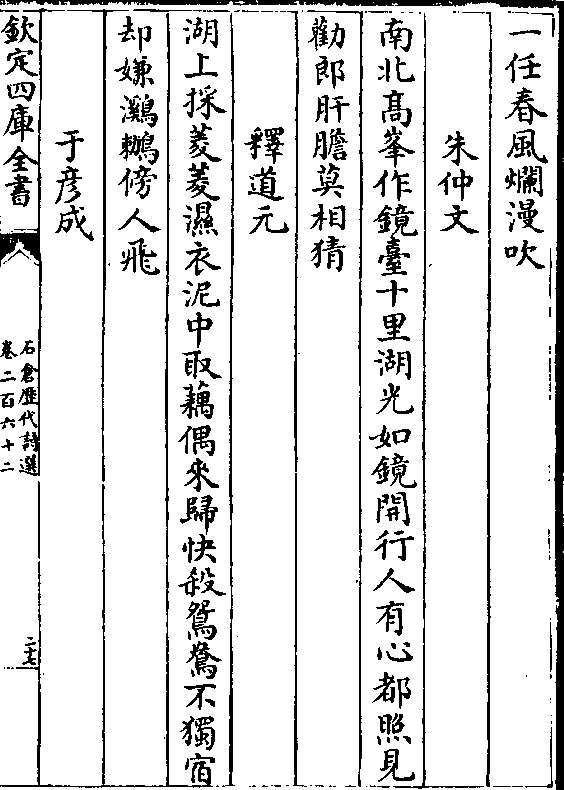 一任春風爛漫吹
朱仲文
南北高峯作鏡臺十里湖光如鏡開行人有心都照見
勸郎肝膽莫相猜
釋道元
湖上採菱菱濕衣泥中取藕偶來歸快殺鴛鴦不獨宿
却嫌鸂鶒傍人飛
于彦成
欽定四庫全書
石倉歷代詩選
卷二百六十二
二十七